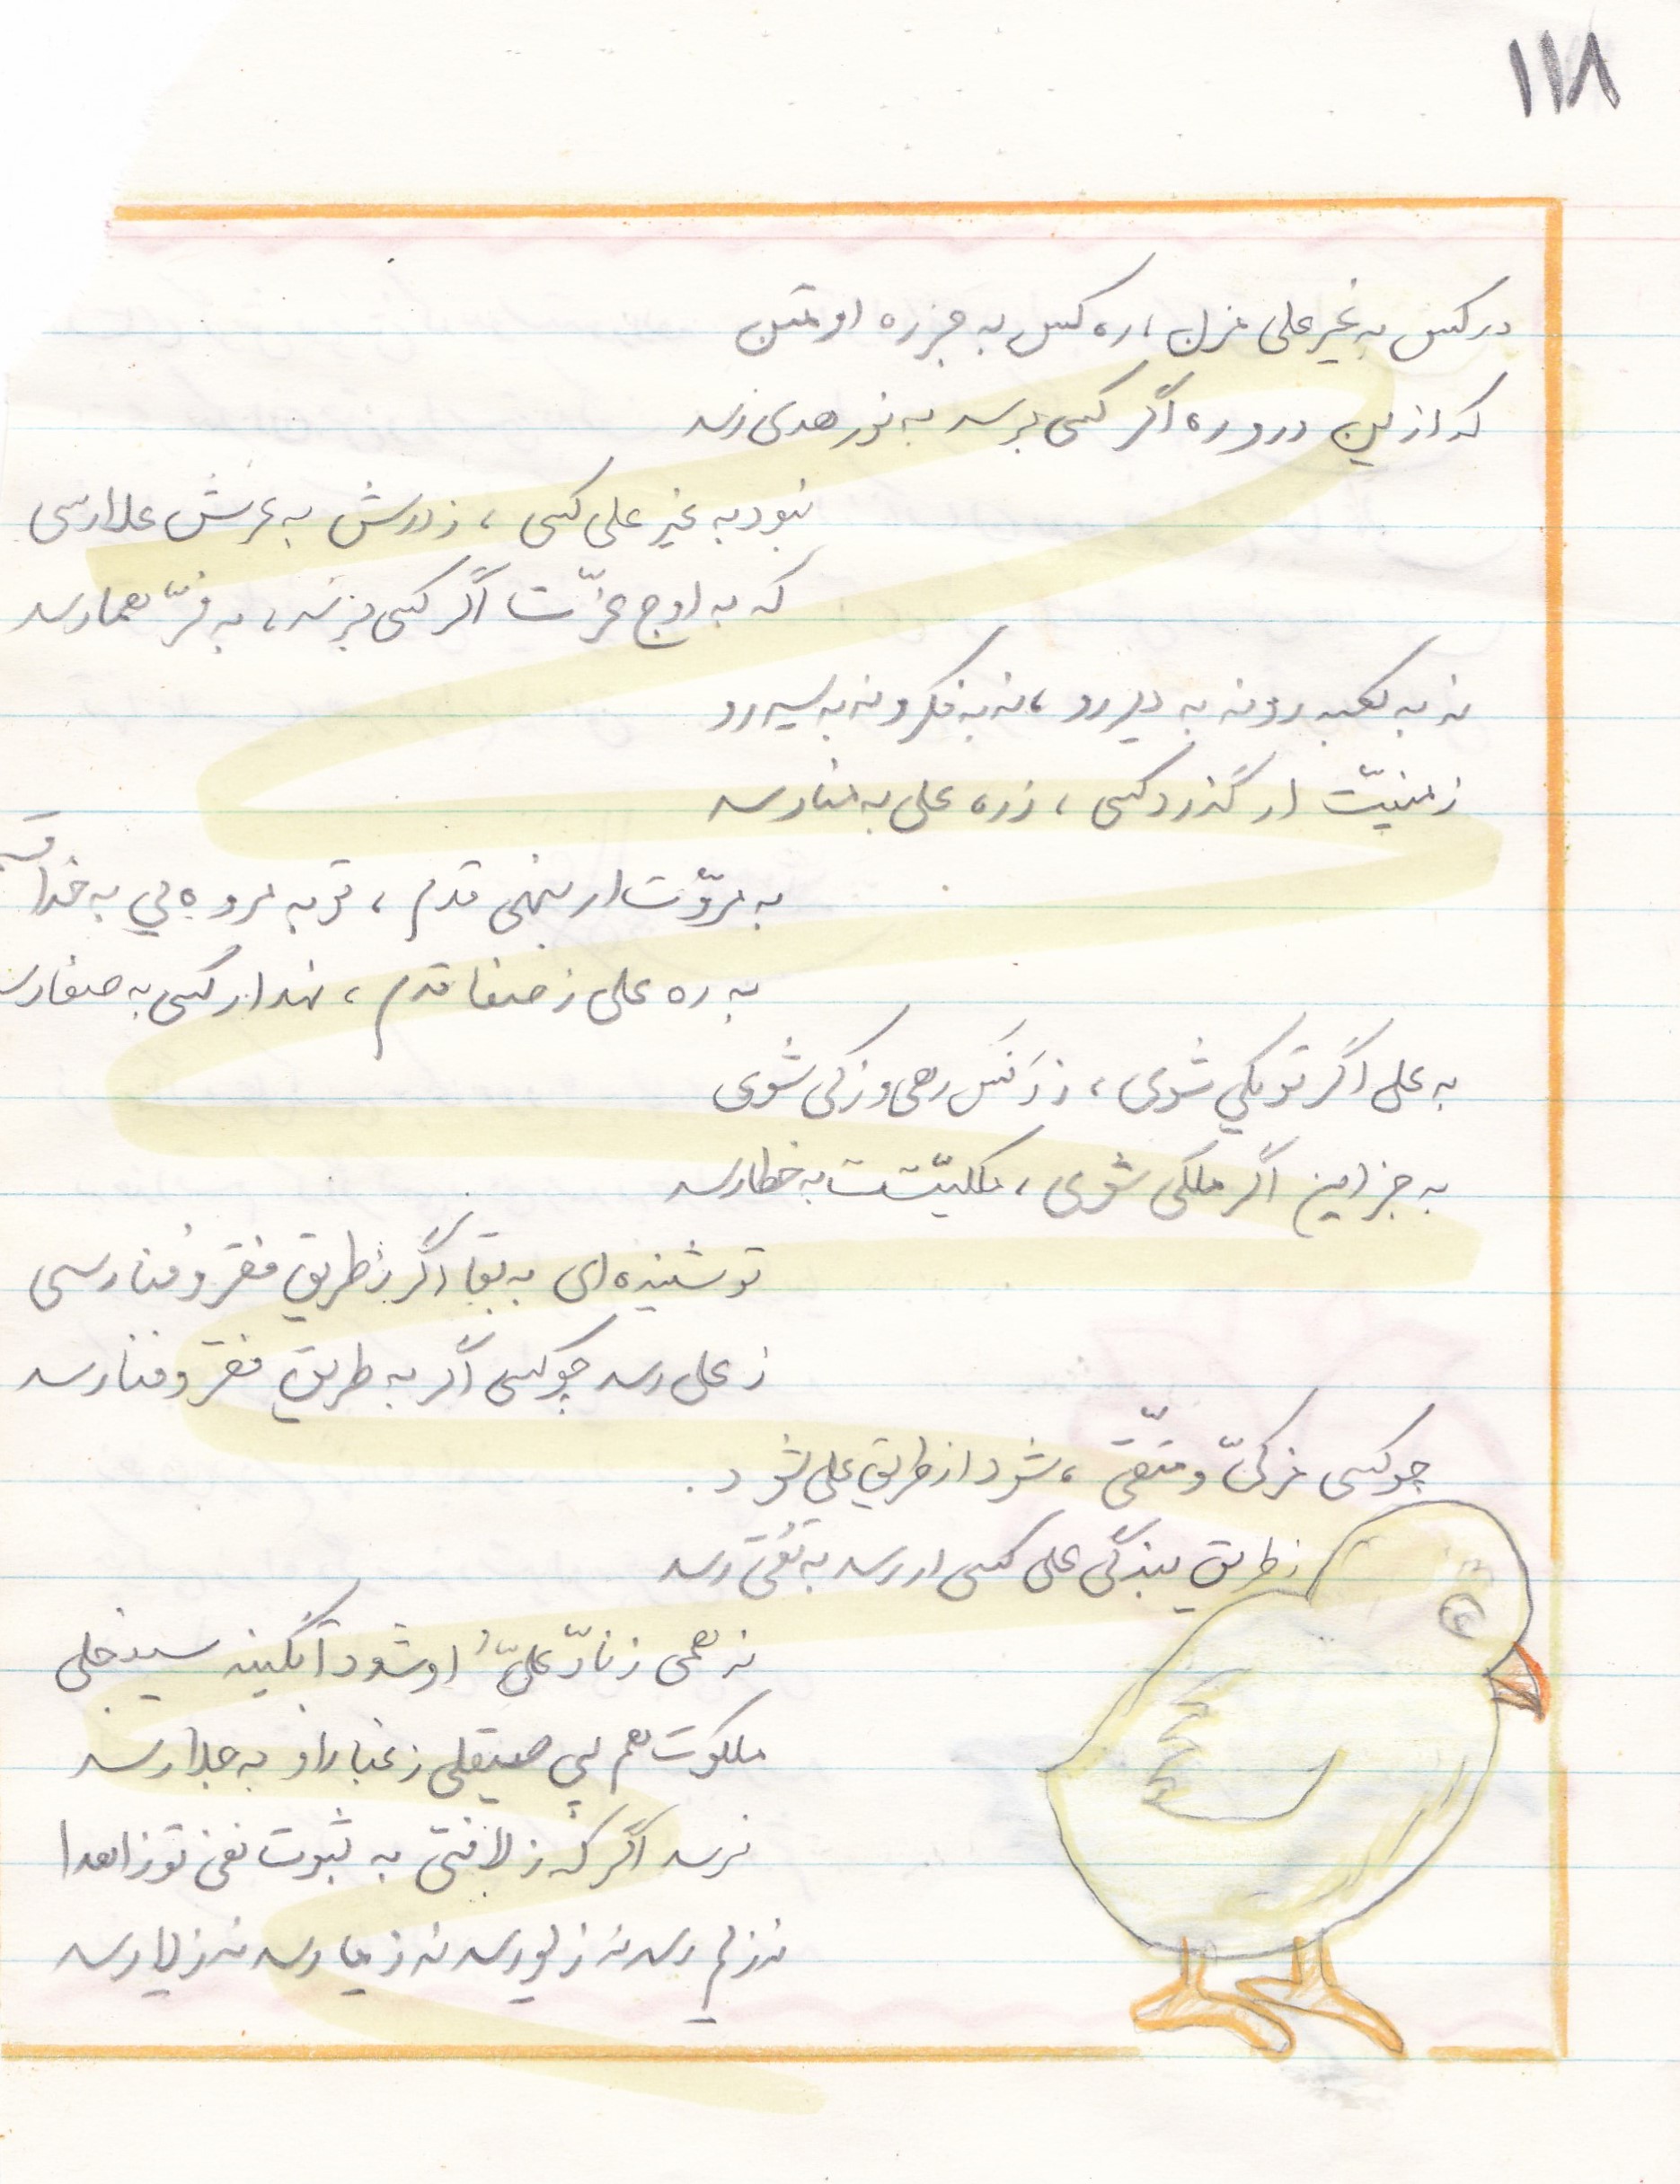 ۱۱۸
در کس به غیر علی مزن، ره کس به جز ره او متن
که ازین در و ره اگر کسی برسد به نور هدی رسد
نبود به غیر علی کسی، ز درش به عرش علا رسی
که به اوج عزّت اگر کسی برسد، به فرّ هما رسد
نه به کعبه رو نه به دیر رو، نه به فکر و نه به سیر رو
ز منیّت ار گذرد کسی، ز ره علی به منا رسد
به مروّت ار بنهی قدم، تو به مروه پی به خدا
به ره علی ز صفا قدم، نهد ار کسی به صفا رسد
به علی اگر تو یکی شوی، ز دنس رهی و زکی شوی
به جز این اگر ملکی شوی، ملکیّتت به خطا رسد
تو شنیده‌ای به بقا اگر ز طریق فقر و فنا رسی
ز علی رسد چو کسی اگر به طریق فقر و فنا رسد
چو کسی مزکّی و متّقی، شود از طریق علی شود.
ز طریق بندگی علی کسی ار رسد به تُقی رسد
نه همی ز نادّ علیّ او شود آبگینه سینه جلی
ملکوت هم پی صیقلی ز غبار او به جلا رسد
نرسد اگر که ز لافتی به ثبوت نفی تو زاهدا
نه ز لم رسد نه ز لو رسد نه ز ما رسد نه ز لا رسد